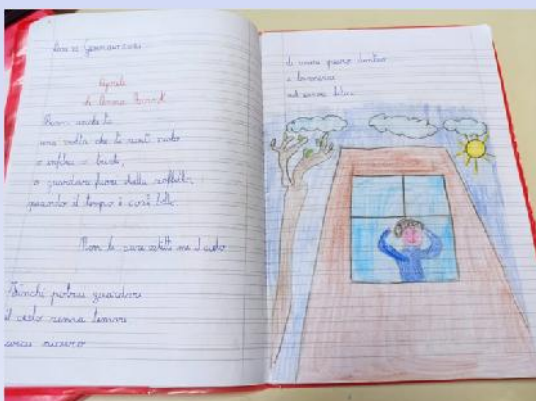 Gennaio
Aprile
di Anna Frank
Prova anche tu
una volta che ti senti solo
o infelice o triste,
a guardare fuori dalla soffitta
quando il tempo è così bello.
Non le case o i tetti ma il cielo.
Finché potrai guardare
il cielo senza timori
sarai sicuro
di essere puro dentro
e tornerai
ad essere felice.